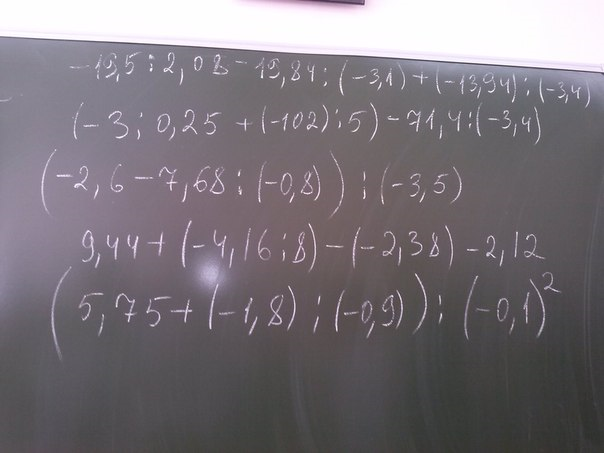 -19,5:2,08-19,84:(-3,1)+(-13,94):(-3,4)
(-3:0,25+(-102):5)-71,4:(-3,4)
(-2,6-7,68:(-0,8)):(-3,5)
9,44+(-4,16:8)-(-2,38)-2,12
(5,75+(-1,8):(-0,9)):(-0,1)²